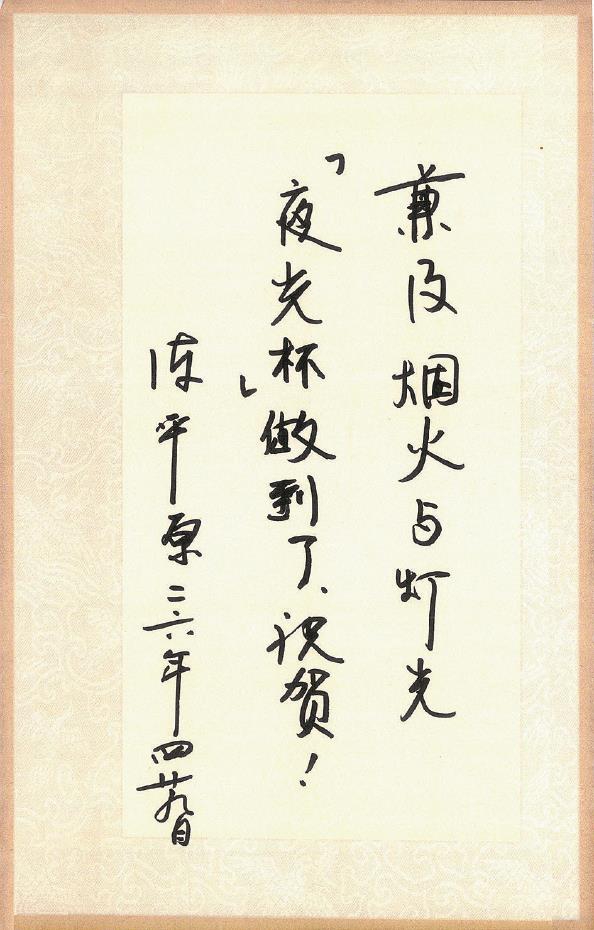 兼及烟火与灯光
「夜光杯」做到了、祝贺！
陈平原二六年四廿九日